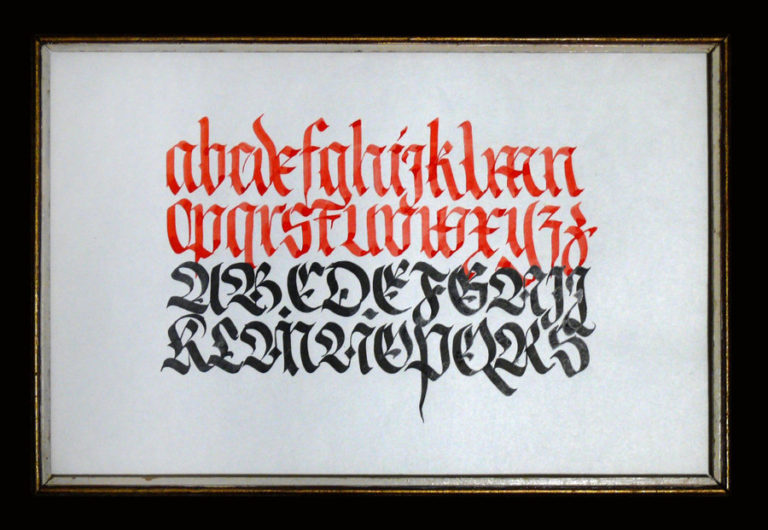 abcdefghijklmn
opqrstuvwxyzz
ABCDEFGHIJ
KLMNOPQRS